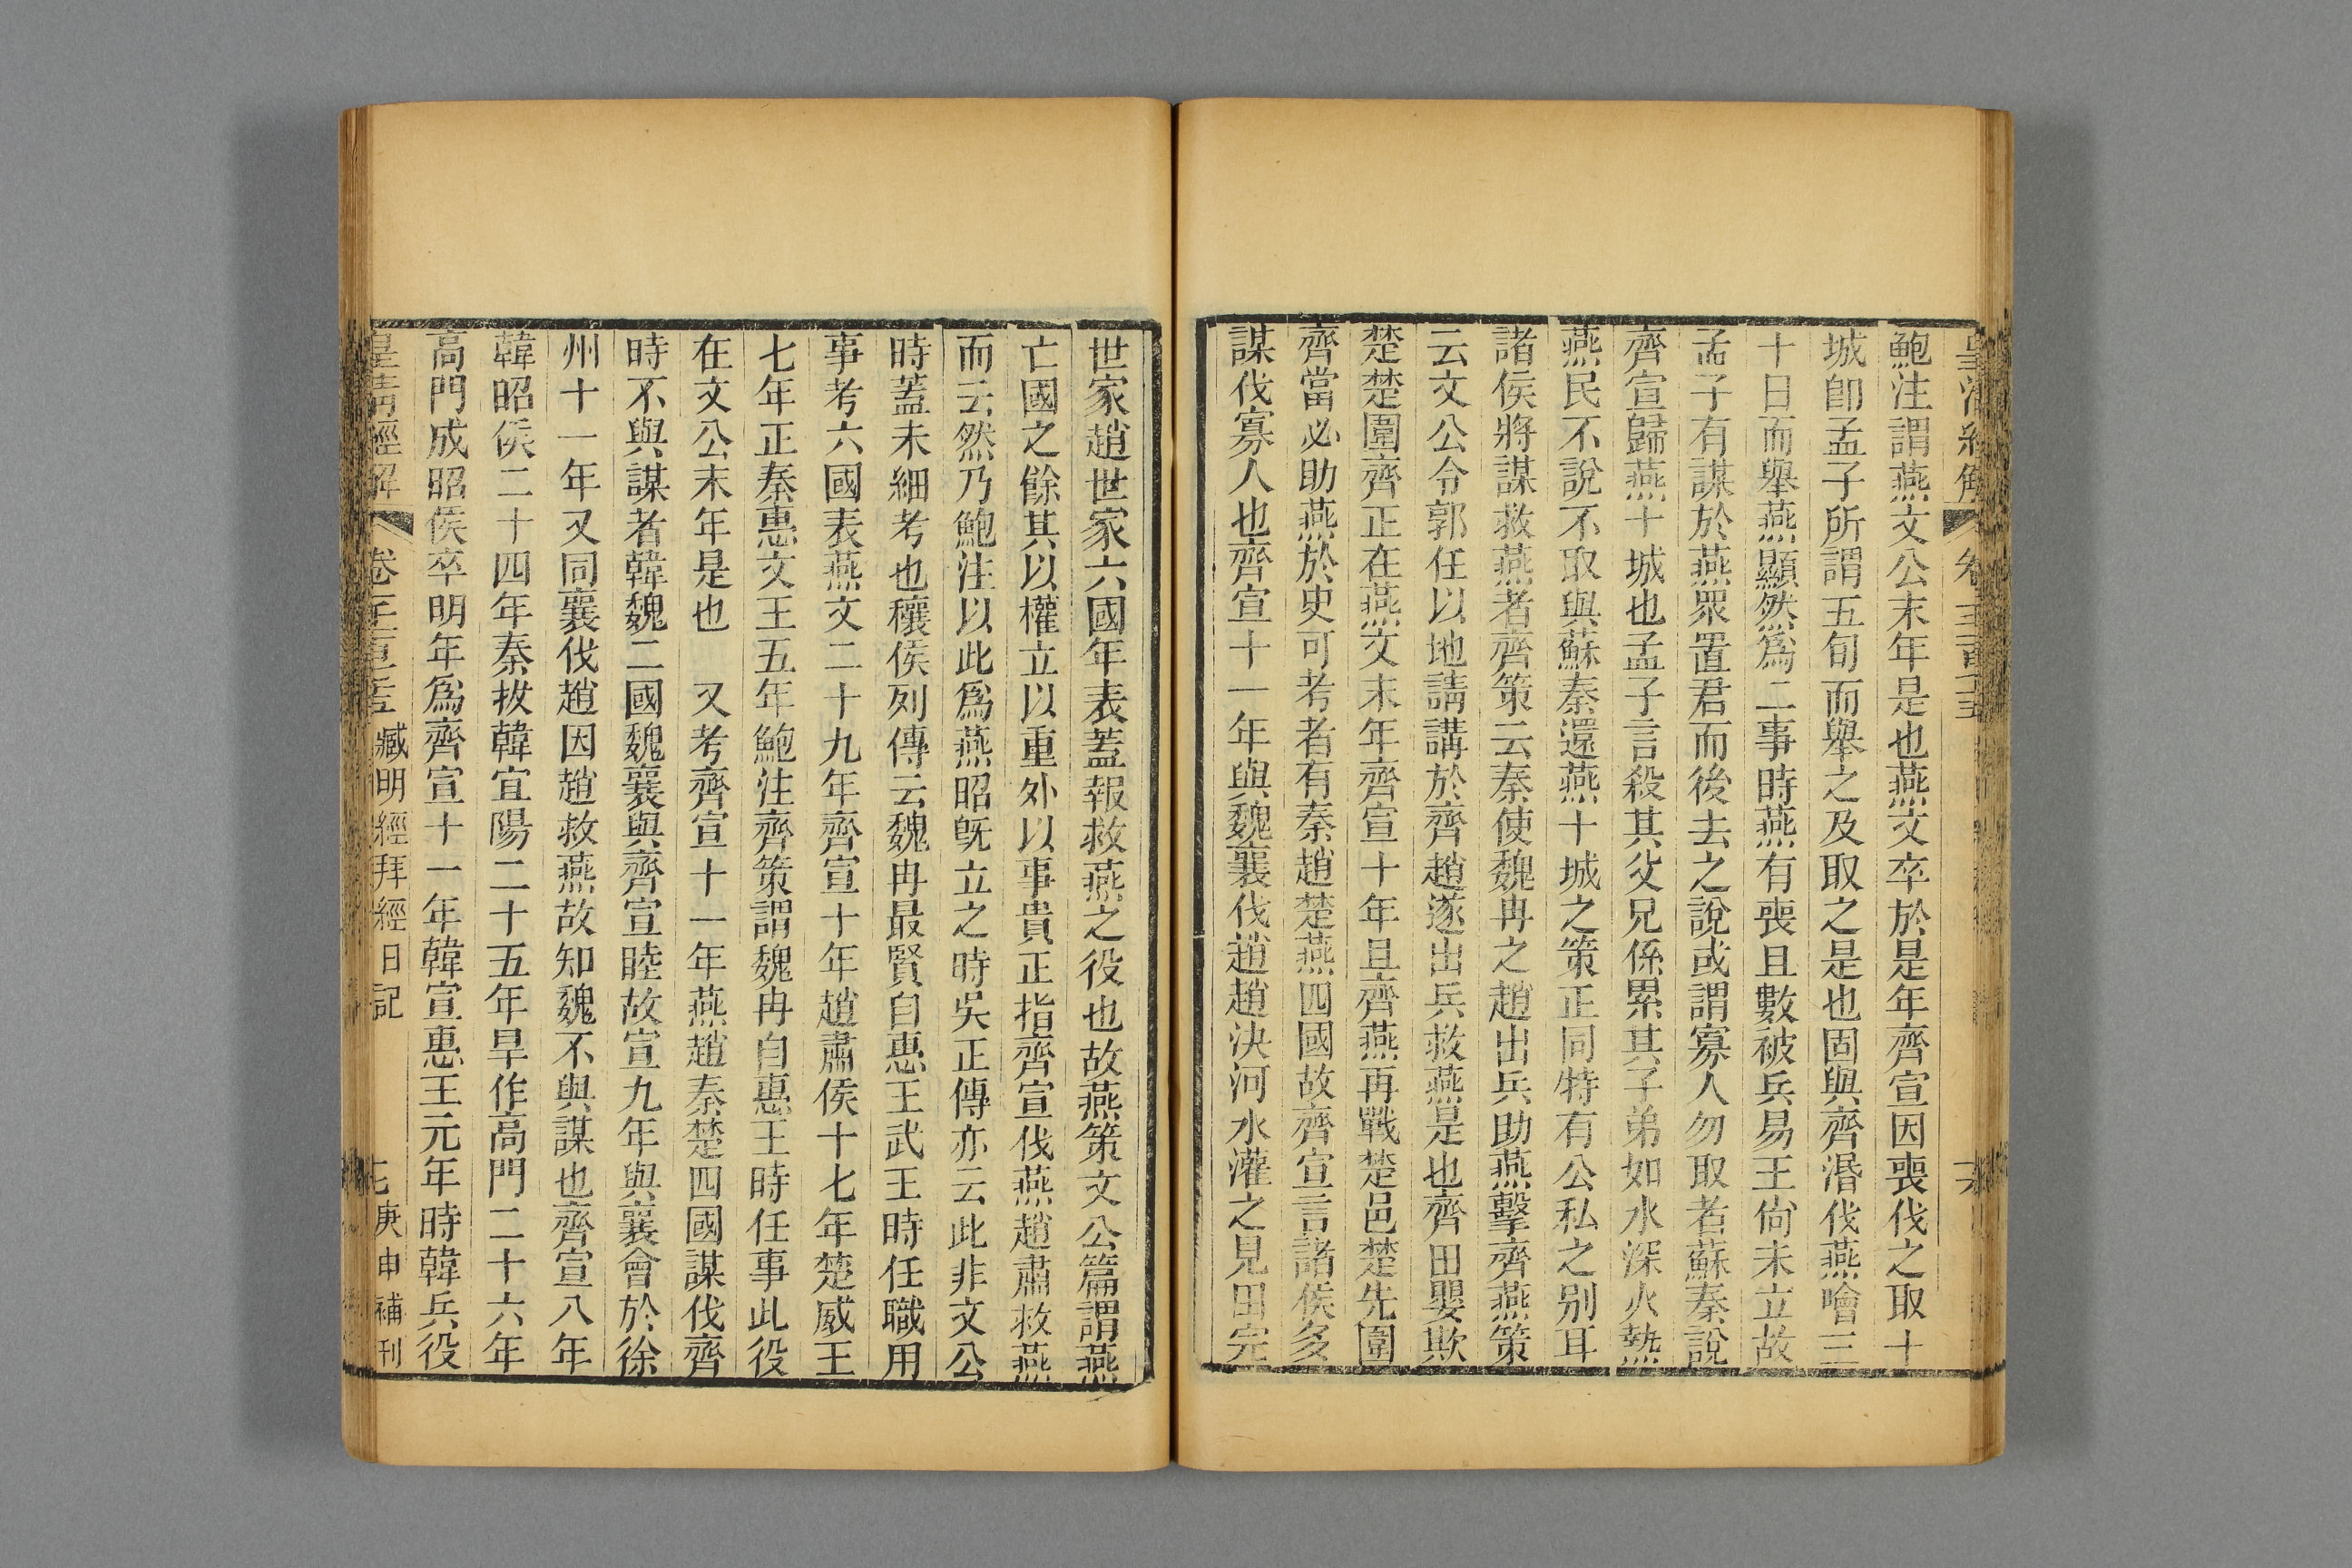 皇清經解 卷
鮑注謂燕文公末年是也燕文卒於是年齊宣因喪伐之取十
城卽孟子所謂五旬而舉之及取之是也固與齊湣伐燕噲三
十日而舉燕顯然爲二事時燕有喪且數被兵易王尙未立故
孟子有謀於燕眾置君而後去之說或謂寡人勿取者蘇秦說
齊宣歸燕十城也孟子言殺其父兄係累其子弟如水深火熱
燕民不說不取與蘇秦還燕十城之策正同特有公私之別耳
諸侯將謀救燕者齊策云秦使魏冉之趙出兵助燕擊齊燕策
云文公令郭任以地請講於齊趙遂出兵救燕是也齊田嬰欺
楚楚圍齊正在燕文末年齊宣十年且齊燕再戰楚邑楚先圍
齊當必助燕於史可考者有秦趙楚燕四國故齊宣言諸侯多
謀伐寡人也齊宣十一年與魏襄伐趙趙決河水灌之見田完
世家趙世家六國年表蓋報救燕之役也故燕策文公篇謂燕
亡國之餘其以權立以重外以事貴正指齊宣伐燕趙肅救燕
而云然乃鮑注以此爲燕昭旣立之時吳正傳亦云此非文公
時蓋未細考也穰侯列傳云魏冉最賢自惠王武王時任職用
事考六國表燕文二十九年齊宣十年趙肅侯十七年楚威王
七年正秦惠文王五年鮑注齊策謂魏冉自惠王時任事此役
在文公末年是也 又考齊宣十一年燕趙秦楚四國謀伐齊
時不與謀者韓魏二國魏襄與齊宣睦故宣九年與襄會於徐
州十一年又同襄伐趙因趙救燕故知魏不與謀也齊宣八年
韓昭侯二十四年秦拔韓宜陽二十五年旱作高門二十六年
高門成昭侯卒明年爲齊宣十一年韓宣惠王元年時韓兵役
皇淸經解 卷 臧明經拜經日記 庚申補刊